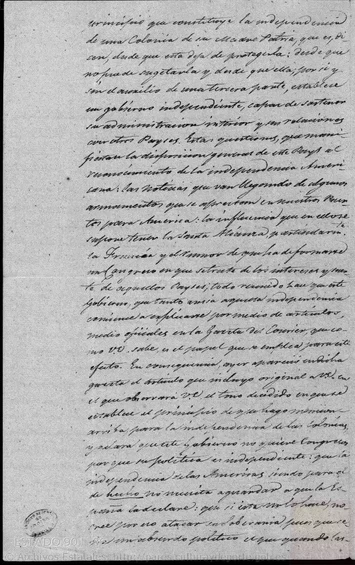 principio que constituye la independencia
de una Colonia de su Madre Patria, que es, di-
cen, desde que esta deja de protegerla: desde que
no puede sugetarla y desde que ella, por si y
sin el auxilio de una tercera parte, establece
un gobierno independiente, capaz de sostener
su administracion interior y sus relaciones
con otros Payses. Esta question, que mani-
fiesta la disposicion general de este Pays al
reconocimiento de la independencia Ameri-
cana: las noticias que van llegando de algunos
armamentos que se aprestan en nuestros Puer-
tos para America: la influencia que en ellos se
supone tener la Santa Alianza y
la Francia y el temor de que ha de formarse
un Congreso en que se trate de los intereses y suer-
te de aquellos Payses, todo reunido hace que este
Gobierno, que tanto ansia aquella independencia
comience a explicarse por medio de articulos,
medio oficiales en la Gaceta del Courier que co-
mo V.E. sabe, es el papel que se emplea para este
efecto. En consequencia, ayer aparecio en dicha
gaceta el articulo que incluyo original a V.E. en
el que observará V.E. el tono decidido en que se
establece el principio de que hago mencion
arriba para la independencia de las Colonias
y aclara que este Gobierno no quiere Congreso,
por que su politica es independiente: que la
independencia de las Americas, siendo para si
de hecho no necesita aguardar a que la Es-
paña la declare; que si esta no lo hace, no
cree por no atacar su soberania pues que se-
ria un absurdo politico el que quando las